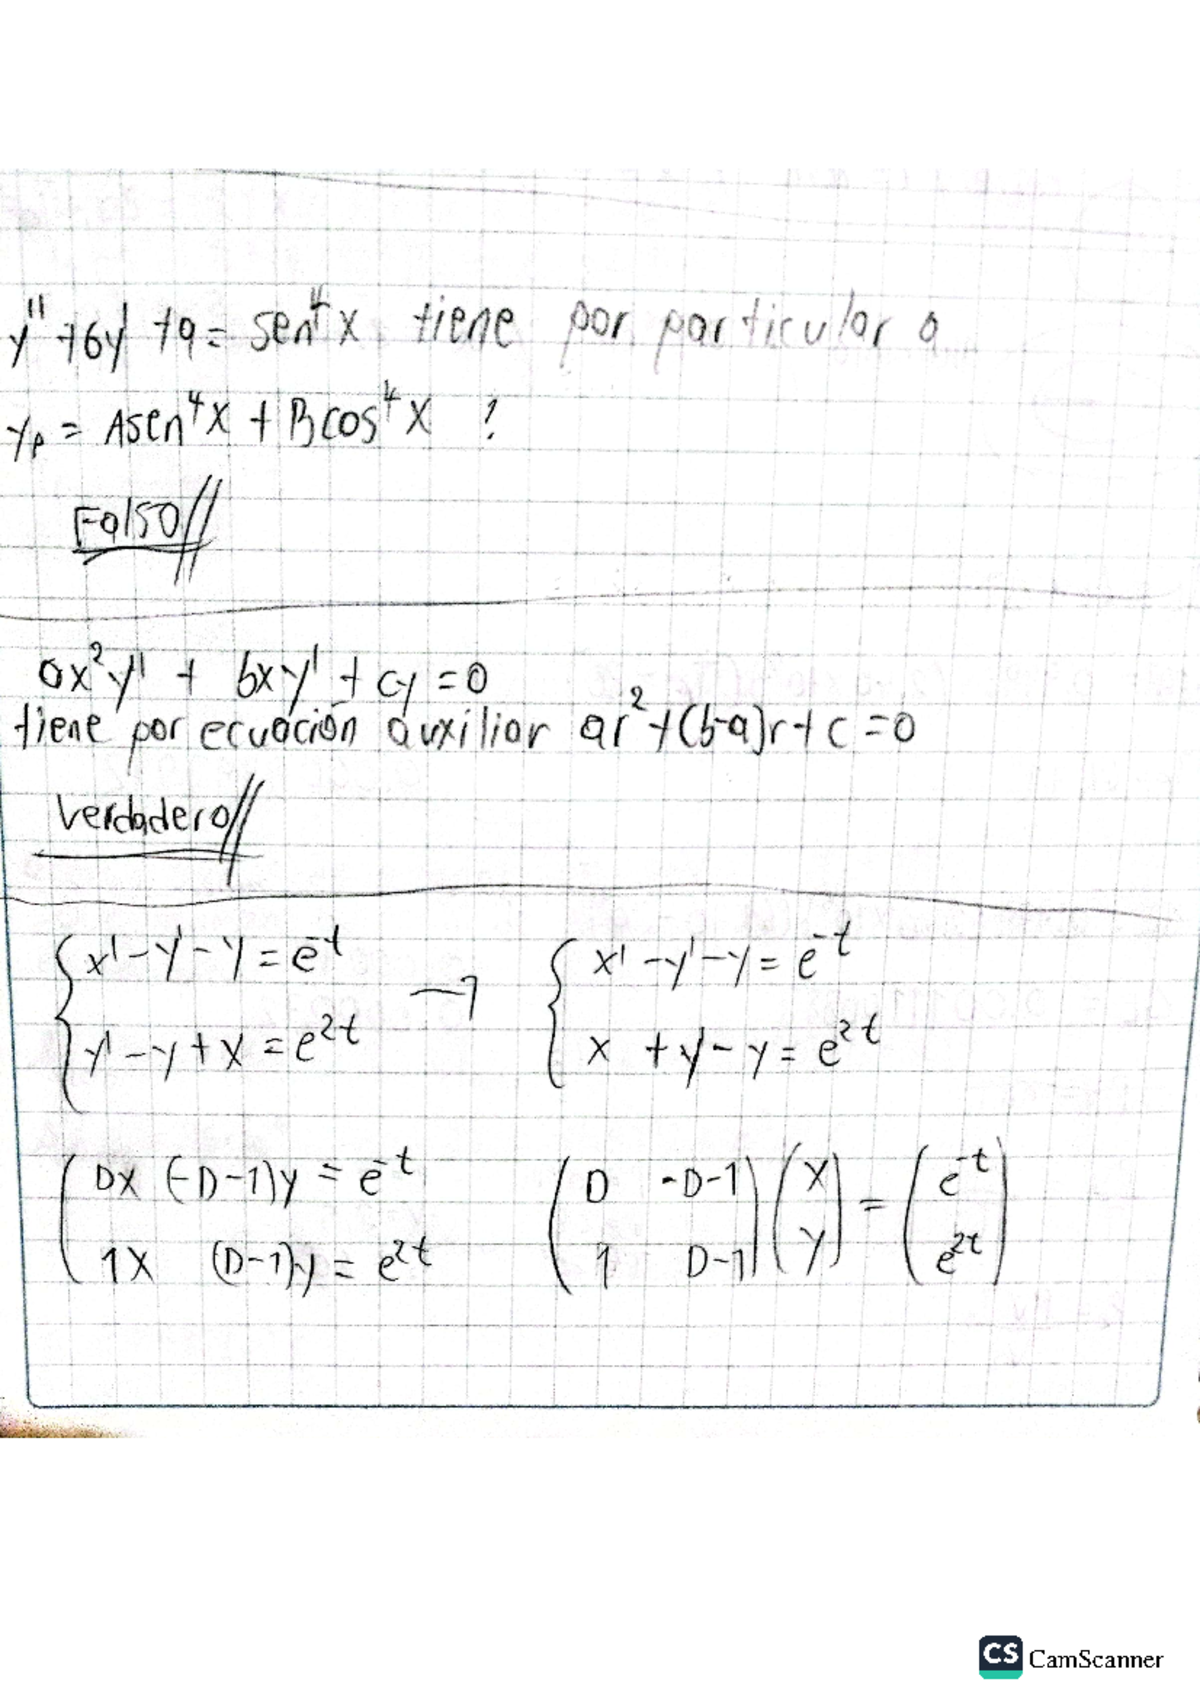 y'' + 6y' + 9 = sen⁴x tiene por particular a
yp = Asen⁴x + Bcos⁴x ?
Falso//
ax²y'' + bxy' + cy = 0
tiene por ecuación auxiliar ar² + (b-a)r + c = 0
Verdadero//
{ x' - y' - y = e^-t → { x' - y' - y = e^-t
{ y' - y + x = e^2t { x + y' - y = e^2t
( Dx (-D-1)y = e^-t ( D -D-1 ) ( x ) = ( e^-t )
( 1x (D-1)y = e^2t ( 1 D-1 ) ( y ) ( e^2t )
CS CamScanner